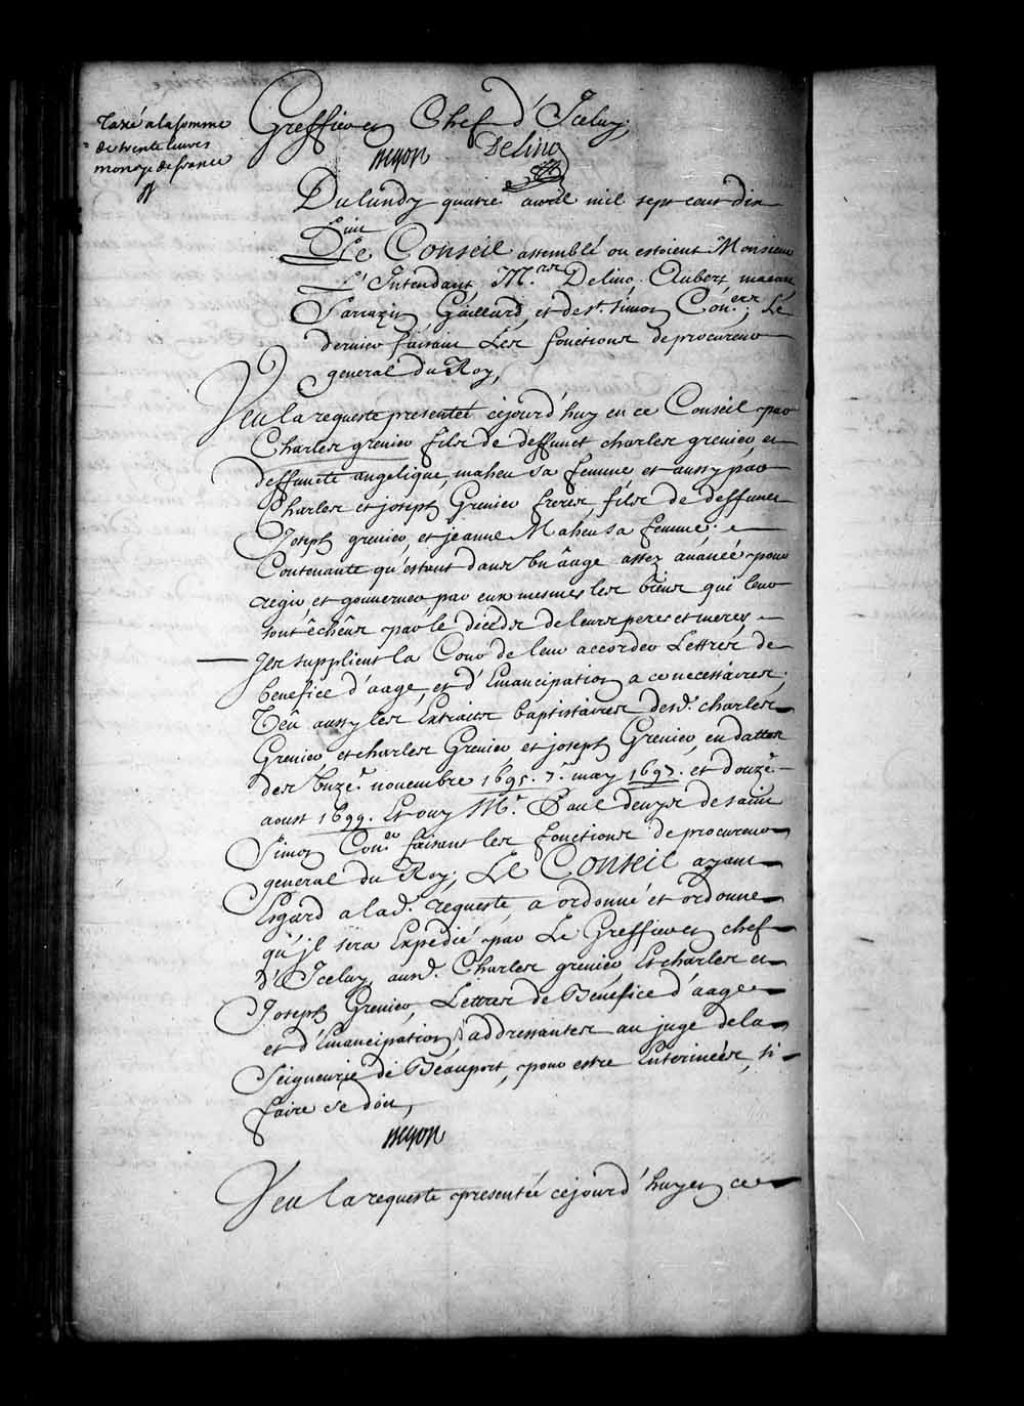 Taxé a la somme
de trente livres
monoye de france
Greffier en Chef d'Iceluy,
Begon Delino
Du lundy quatre avril mil sept cent dix
huit
Le Conseil assemblé ou estoient Monsieur
L'Intendant, M.rs Delino, Aubert, macart
Sarrazin Gaillard, et de s.t simon Con.ers, Le
dernier faisant Les fonctions de procureur
general du Roy,
Veu la requeste presenteé cejourd'huy en ce Conseil par
Charles grenier fils de deffunct charles grenier, et
deffuncte angelique maheu sa femme, et aussy par
Charles et joseph Grenier freres, fils de deffunct
Joseph grenier, et jeanne Maheu sa femme;
Contenante qu'estant dans un âage assez avancé pour
regir, et gouverner par eux mesmes les biens qui leur
sont êcheus par le decéds de leurs peres et meres,
Ils supplient la Cour de leur accorder Lettres de
benefice d'aage, et d'Emancipation a ce necessaires,
Veû aussy les Extraits baptistaires desd. charles
Grenier, et charles Grenier, et joseph Grenier, en datte
des unze.e novembre 1695. 7.e may 1697. et douze.e
aoust 1699. Et ouy M.e Paul denys de saint
Simon Con.er faisant les fonctions de procureur
general du Roy; Le Conseil ayant
Esgard a la d. requeste a ordonné et ordonne
qu'il sera Expedié par Le Greffier en chef
d'Iceluy, ausd. Charles grenier, Et charles et
Joseph Grenier, Lettres de Bénéfice d'aage
et d'Emancipation addressantes au juge de la
Seigneurie de Beauport, pour estre Enterinées, si
faire se doit,
Begon
Veu la requeste presentée cejourd'huy en ce